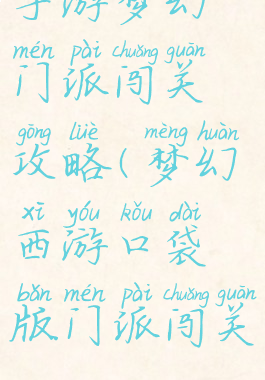 手游梦幻
mén pài chuǎng guān
门派闯关
gōng lüè mèng huàn
攻略(梦幻
xī yóu kǒu dài
西游口袋
bǎn mén pài chuǎng guān
版门派闯关